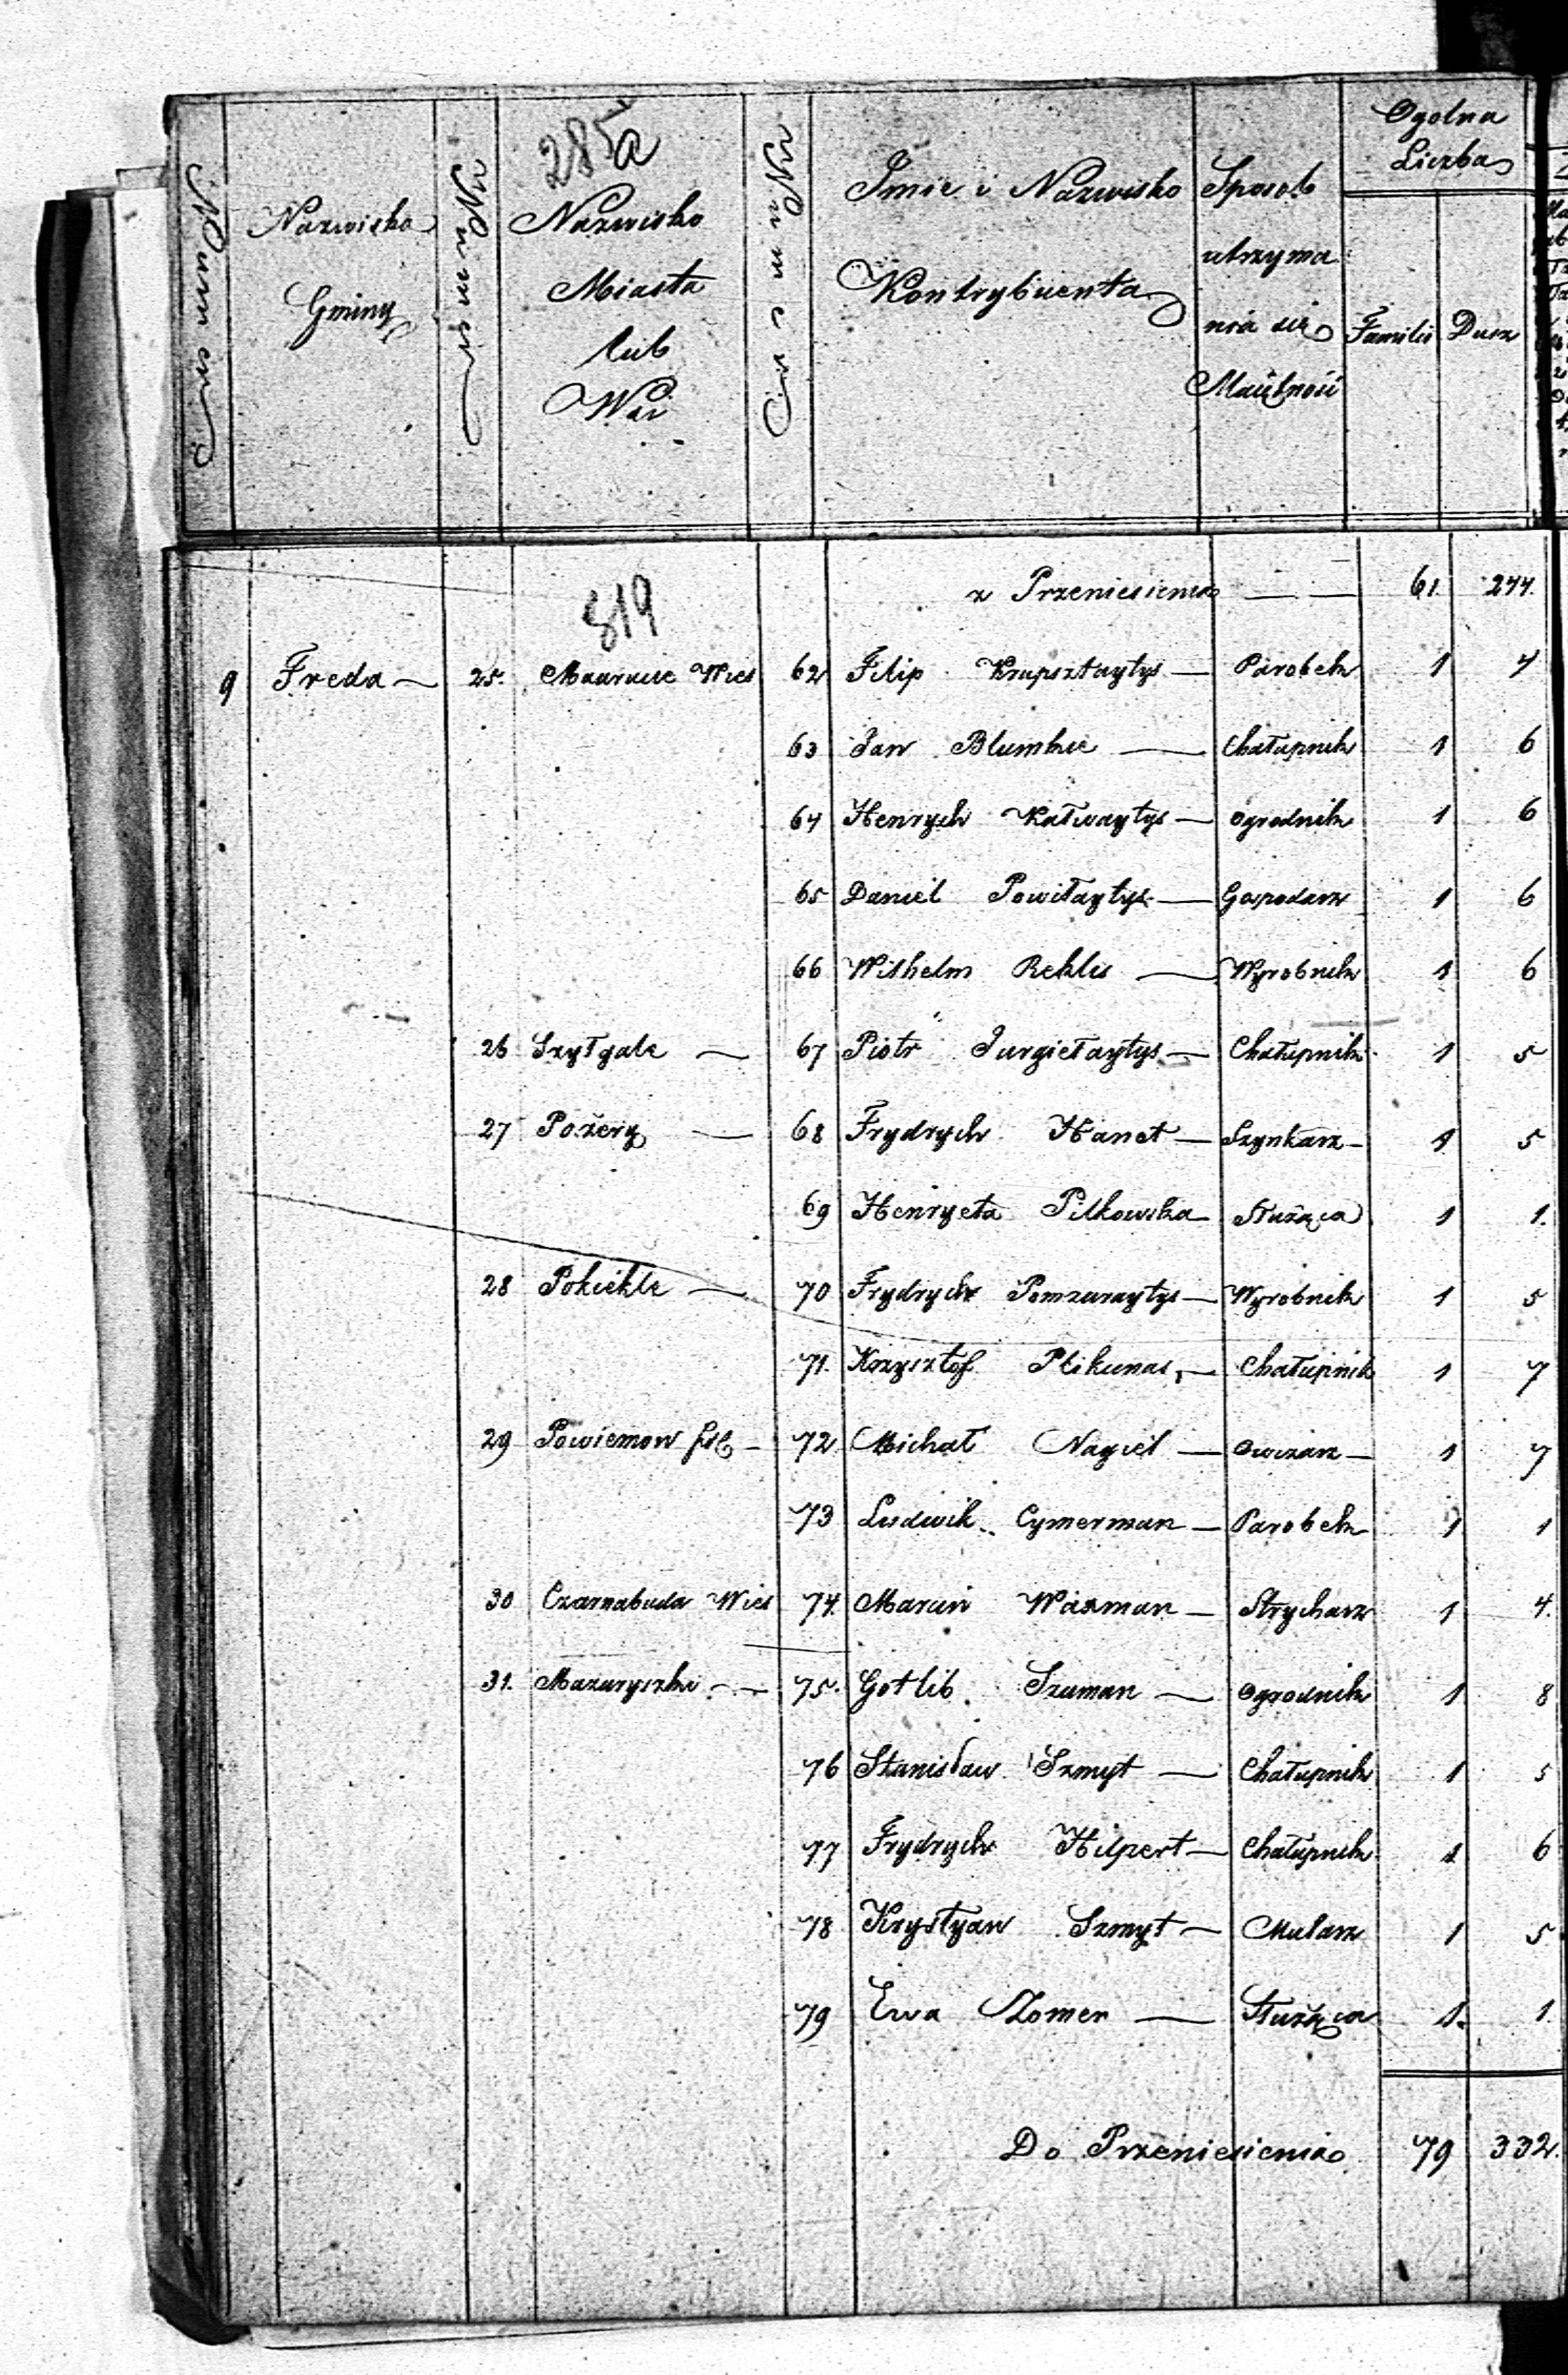 285a
Numer
Nazwisko Gminy
Numer
Nazwisko Miasta lub Wsi
Numer
Imie i Nazwisko Kontrybuenta
Sposob utrzyma nia się Maiętność
Ogolna Liczba
Familii Dusz
819
z Przeniesienia — — 61. 244.
9 Freda — 25. Maurucie Wies 62 Filip Krupsztaytys — Parobek 1 4
63 Jan Blumkie — Chałupnik 1 6
64 Henrych Katwaytys — Ogrodnik 1 6
65 Daniel Powiłaytys — Gospodarz 1 6
66 Wilhelm Reklis — Wyrobnik 1 6
26 Szyłgale — 67 Piotr Jurgiełaytys — Chałupnik 1 5
27 Pożery — 68 Frydrych Hanet — Szynkarz — 1 5
69 Henryeta Pilkowska — Służąca 1 1.
28 Pokiekle — 70 Frydrych Pomzuraytys — Wyrobnik 1 5
71. Krzysztof Plikunas — Chałupnik 1 7
29 Powiemow — 72 Michał Nagiel — Owczarz — 1 7
73 Ludwik Cymerman — Parobek 1 1
30 Czarnabuda Wies 74. Marcin Waxman — Strycharz 1 4.
31. Mazuryszki — 75. Gotlib Szuman — Ogrodnik 1 8
76 Stanisław Szmyt — Chałupnik 1 5
77 Frydrych Hilpert — Chałupnik 1 6
78 Krystyan Szmyt — Mularz 1 5
79 Ewa Zomer — Służąca 1. 1.
Do Przeniesienia 79 332.